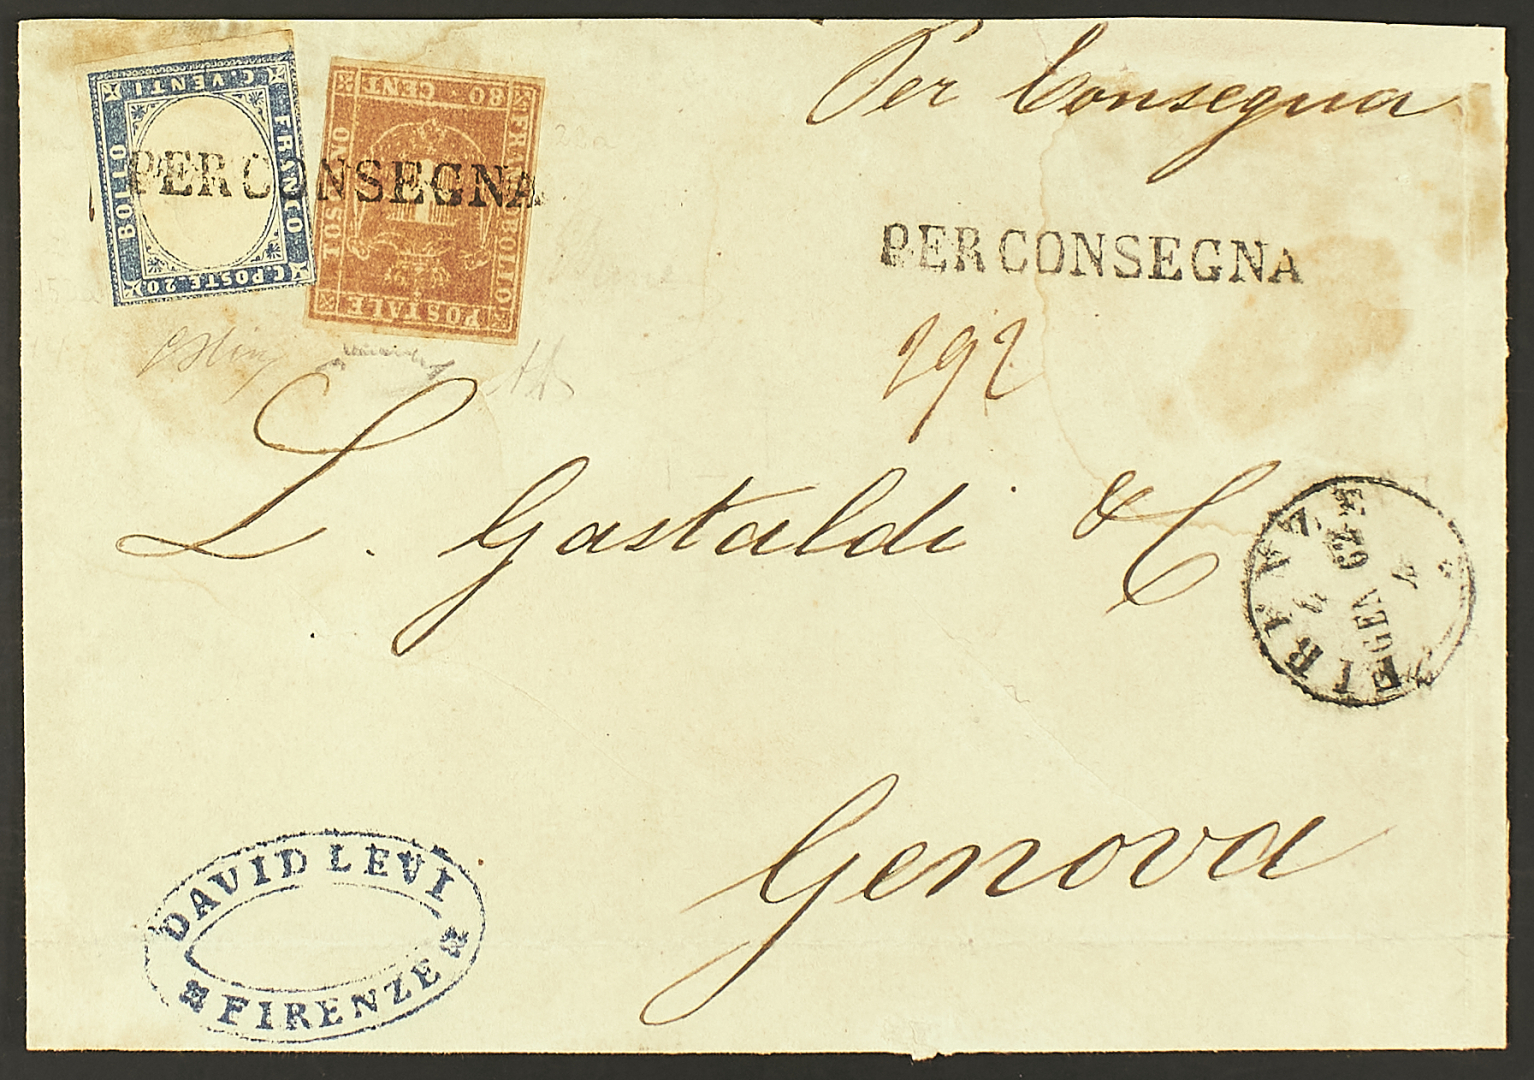 Per Consegna
C. VENTI
FRANCO
C. POSTE 20
BOLLO
80 CENT
FRANCOBOLLO
POSTALE
TOSCANO
PER CONSEGNA
PER CONSEGNA
292
L. Gastaldi & C
FIRENZE
GEN 62
Genova
DAVID LEVI
FIRENZE